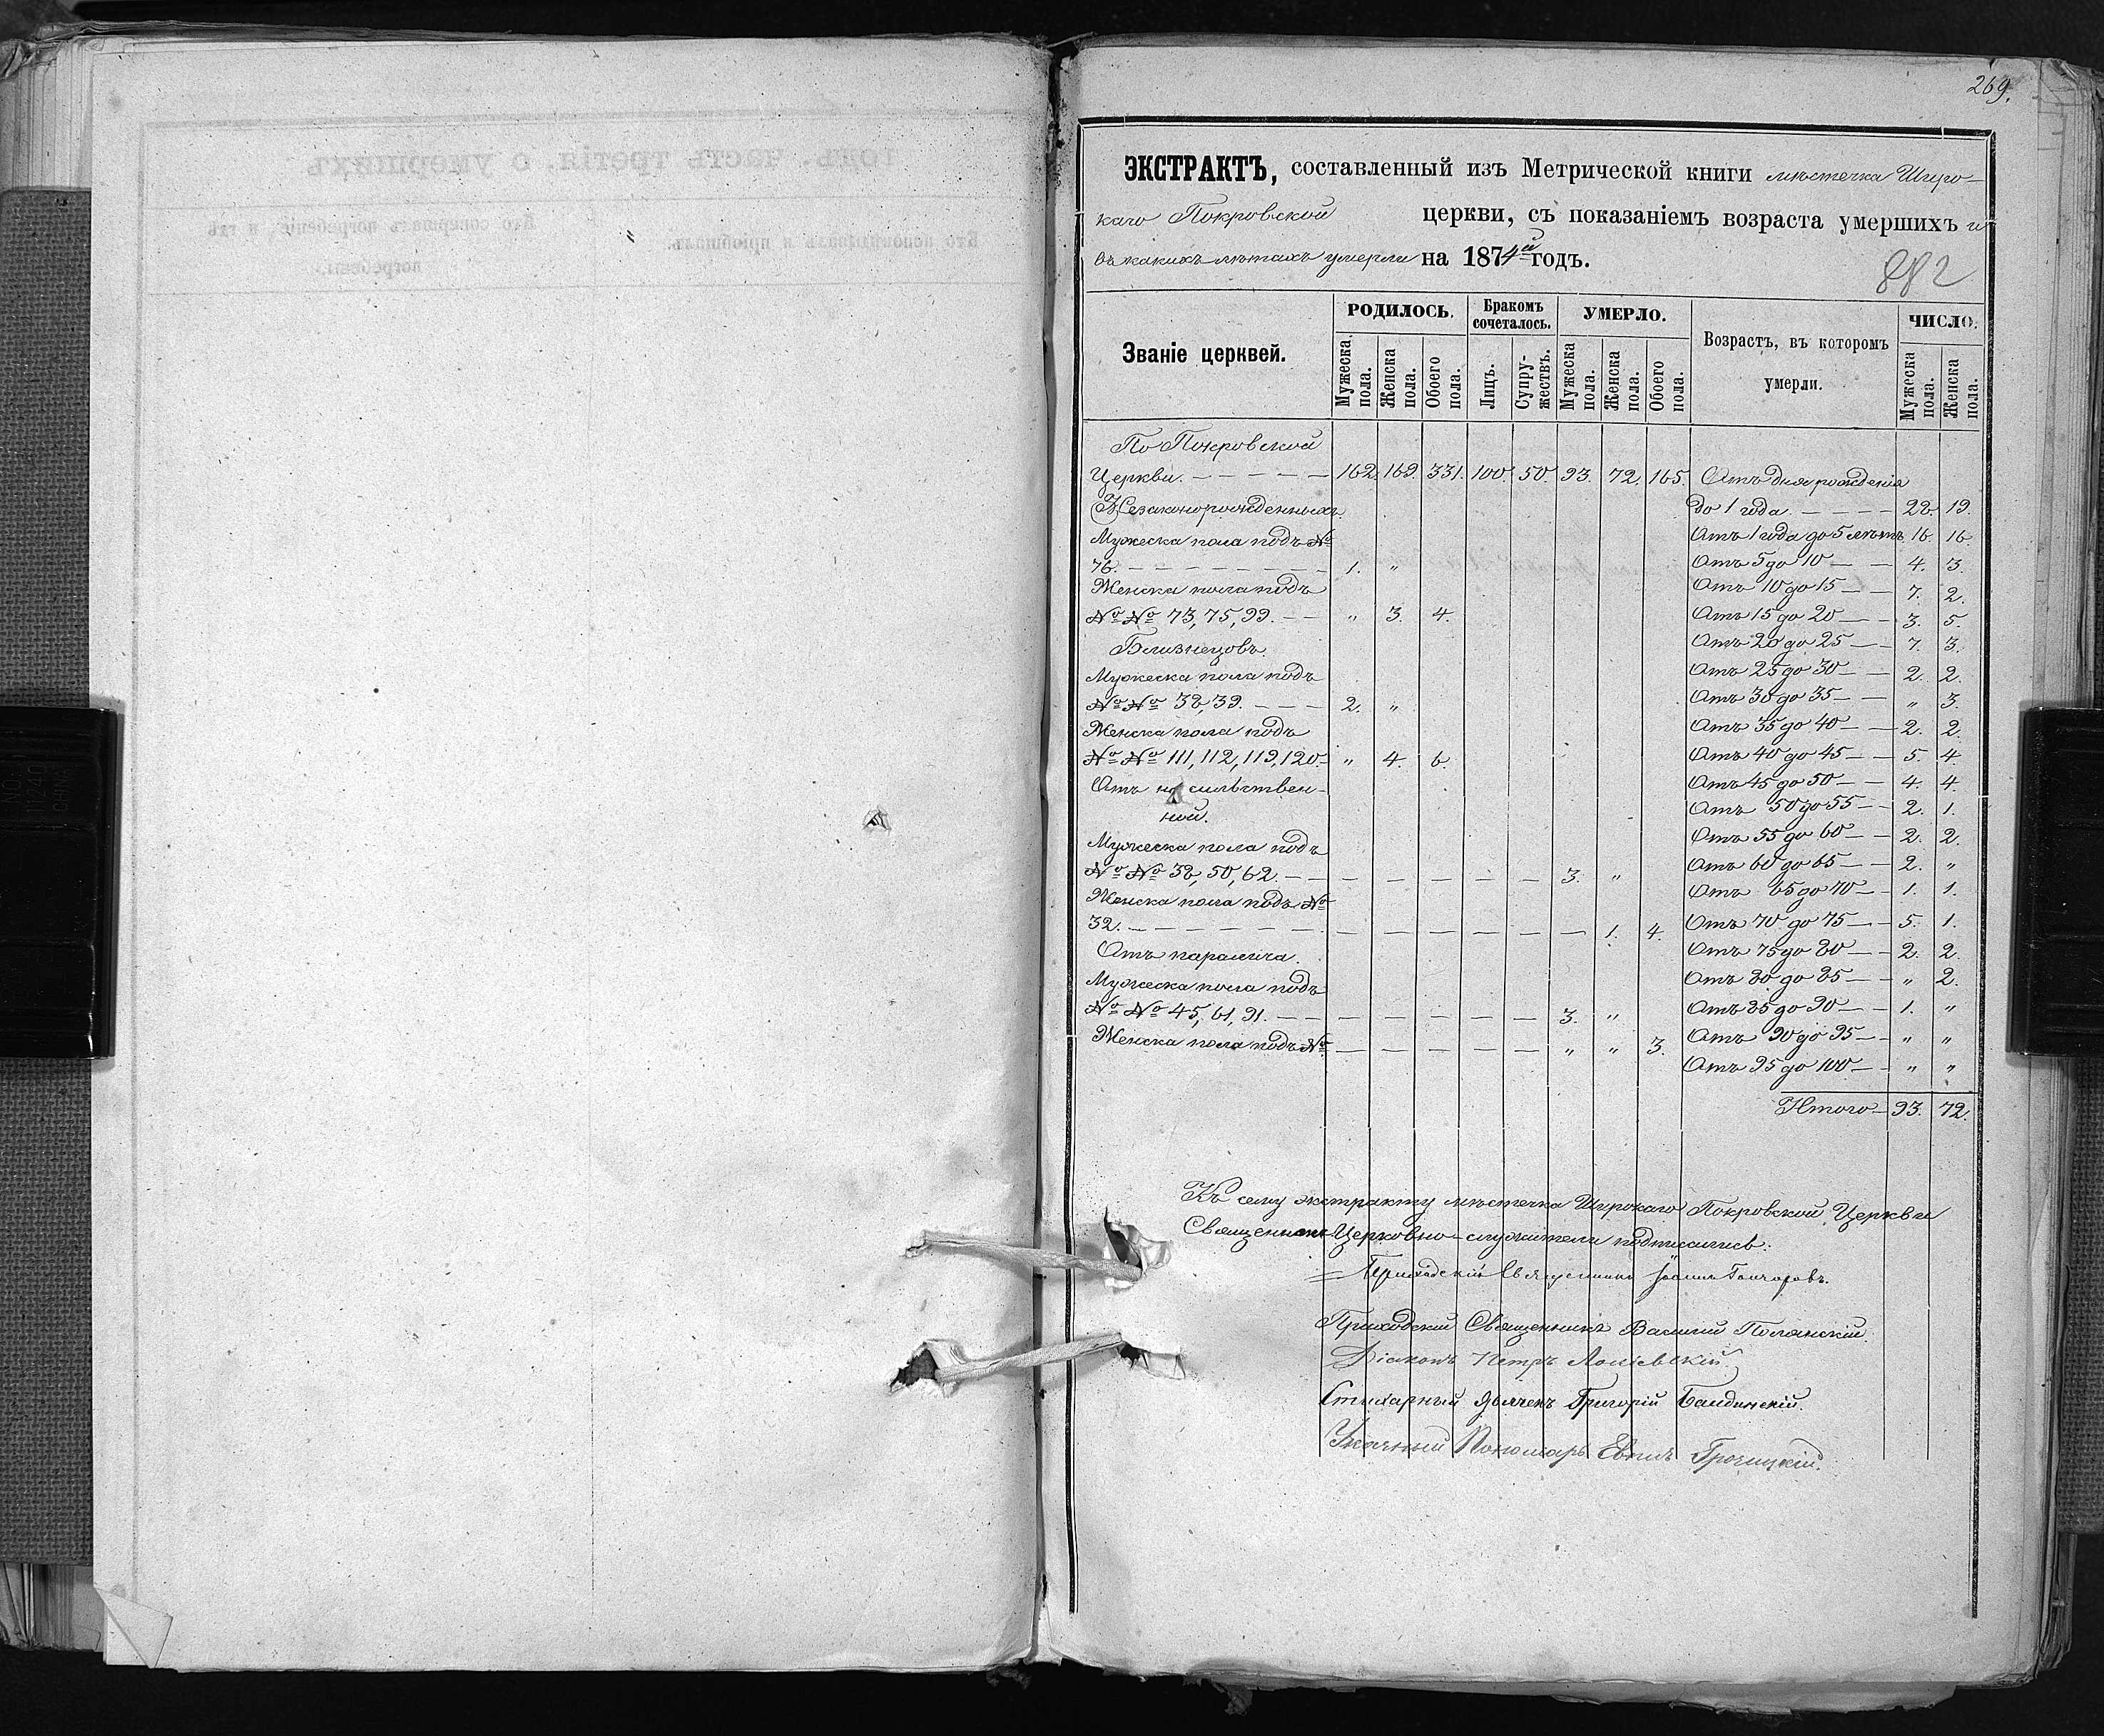 269.
ЭКСТРАКТЪ, составленный изъ Метрической книги мѣстечка Широ-
каго Покровской церкви, съ показаніемъ возраста умершихъ и
въ какихъ лѣтахъ умерли на 1874й годъ.
882
Званіе церквей.
РОДИЛОСЬ.
Бракомъ сочеталось.
УМЕРЛО.
Возрастъ, въ которомъ умерли.
ЧИСЛО.
Мужеска пола.
Женска пола.
Обоего пола.
Лицъ.
Супружествъ.
Мужеска пола.
Женска пола.
Обоего пола.
Мужеска пола.
Женска пола.
По Покровской
Церкви. — — — — — 162. 169. 331. 100. 50. 93. 72. 165. Отъ дня рожденія
Незаконорожденныхъ. до 1 года. — — — — 22. 19.
Мужеска пола подъ № Отъ 1 года до 5 лѣтъ. 16. 16.
76. — — — — — — — 1. „ Отъ 5 до 10 — — 4. 3.
Женска пола подъ Отъ 10 до 15 — — 7. 2.
№ № 73, 75, 99. — — „ 3. 4. Отъ 15 до 20 — — 3. 5.
Близнецовъ. Отъ 20 до 25 — — 7. 3.
Мужеска пола подъ Отъ 25 до 30 — — 2. 2.
№ № 38, 39. — — — 2. „ Отъ 30 до 35 — „ 3.
Женска пола подъ Отъ 35 до 40 — — 2. 2.
№ № 111, 112, 119, 120. — „ 4. 6. Отъ 40 до 45 — — 5. 4.
Отъ Отъ 45 до 50 — — 4. 4.
ной. Отъ 50 до 55 — — 2. 1.
Мужеска пола подъ Отъ 55 до 60 — — 2. 2.
№ № 38, 50, 62. — — — — — — — 3. „ Отъ 60 до 65 — — 2. „
Женска пола подъ № Отъ 65 до 70 — — 1. 1.
32. — — — — — — — — — — — — 1. 4. Отъ 70 до 75 — — 5. 1.
Отъ паралича. Отъ 75 до 80 — — 2. 2.
Мужеска пола подъ Отъ 80 до 85 — — „ 2.
№ № 45, 61, 91. — — — — — — — 3. „ Отъ 85 до 90 — — 1. „
Женска пола подъ № — — — — — „ „ 3. Отъ 90 до 95 — — „ „
Отъ 95 до 100 — — „ „
Итого — 93. 72.
Къ сему экстракту мѣстечка Широкаго Покровской Церкви
Церковно-служители подписались:
Приходскій Священникъ Іоаннъ Гончаровъ.
Приходскій Священникъ Василій Полянскій.
Діаконъ Петръ
Стихарный Дьячекъ Григорій
Указный Пономарь